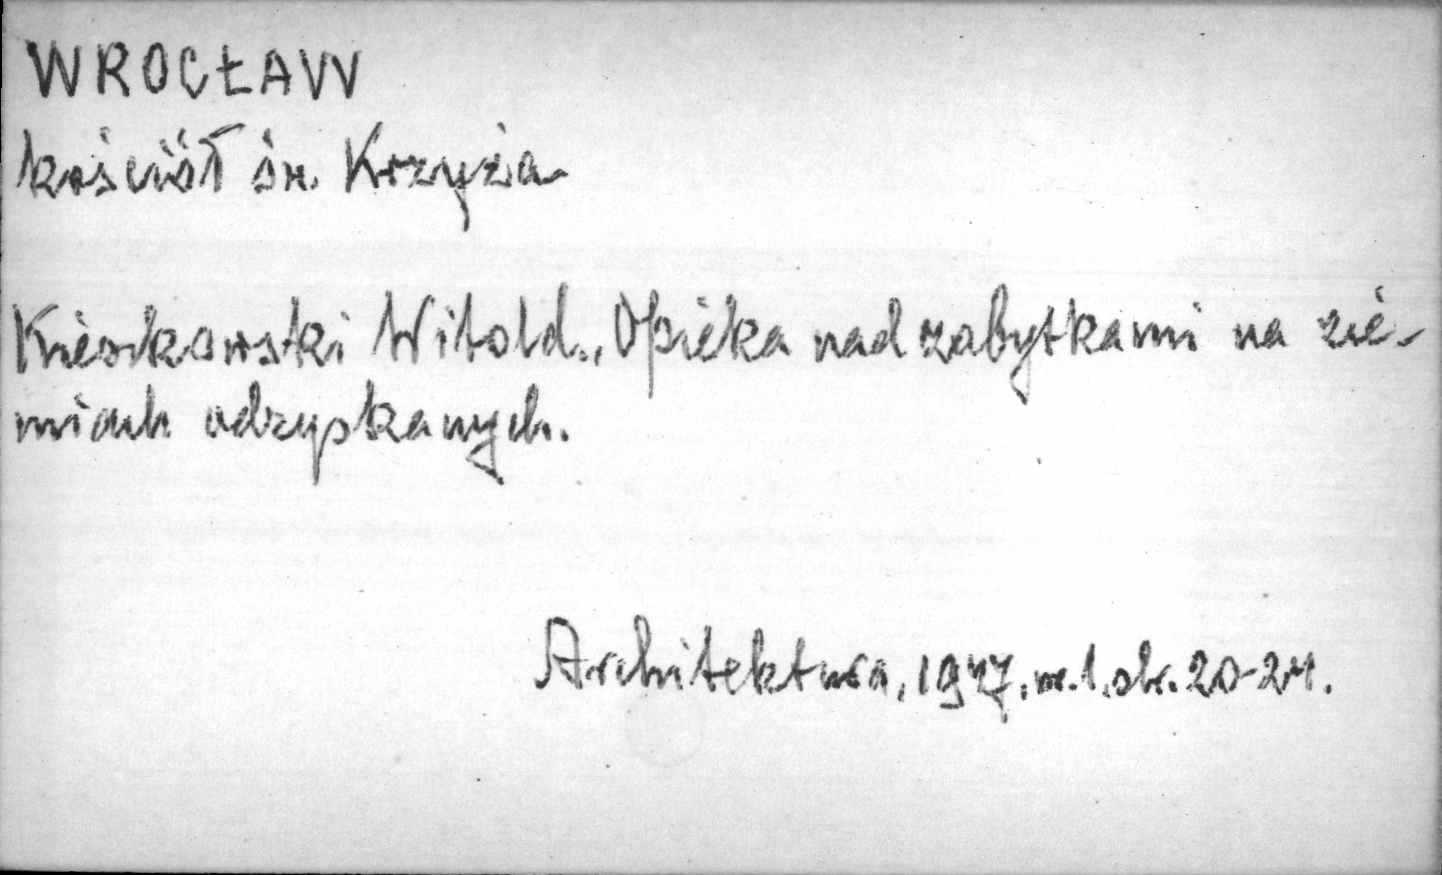 WROCŁAW
kościół św. Krzyża
Kieszkowski Witold., Opieka nad zabytkami na zie-
miach odzyskanych.
Architektura, 1947, nr. 1, str. 20-24.